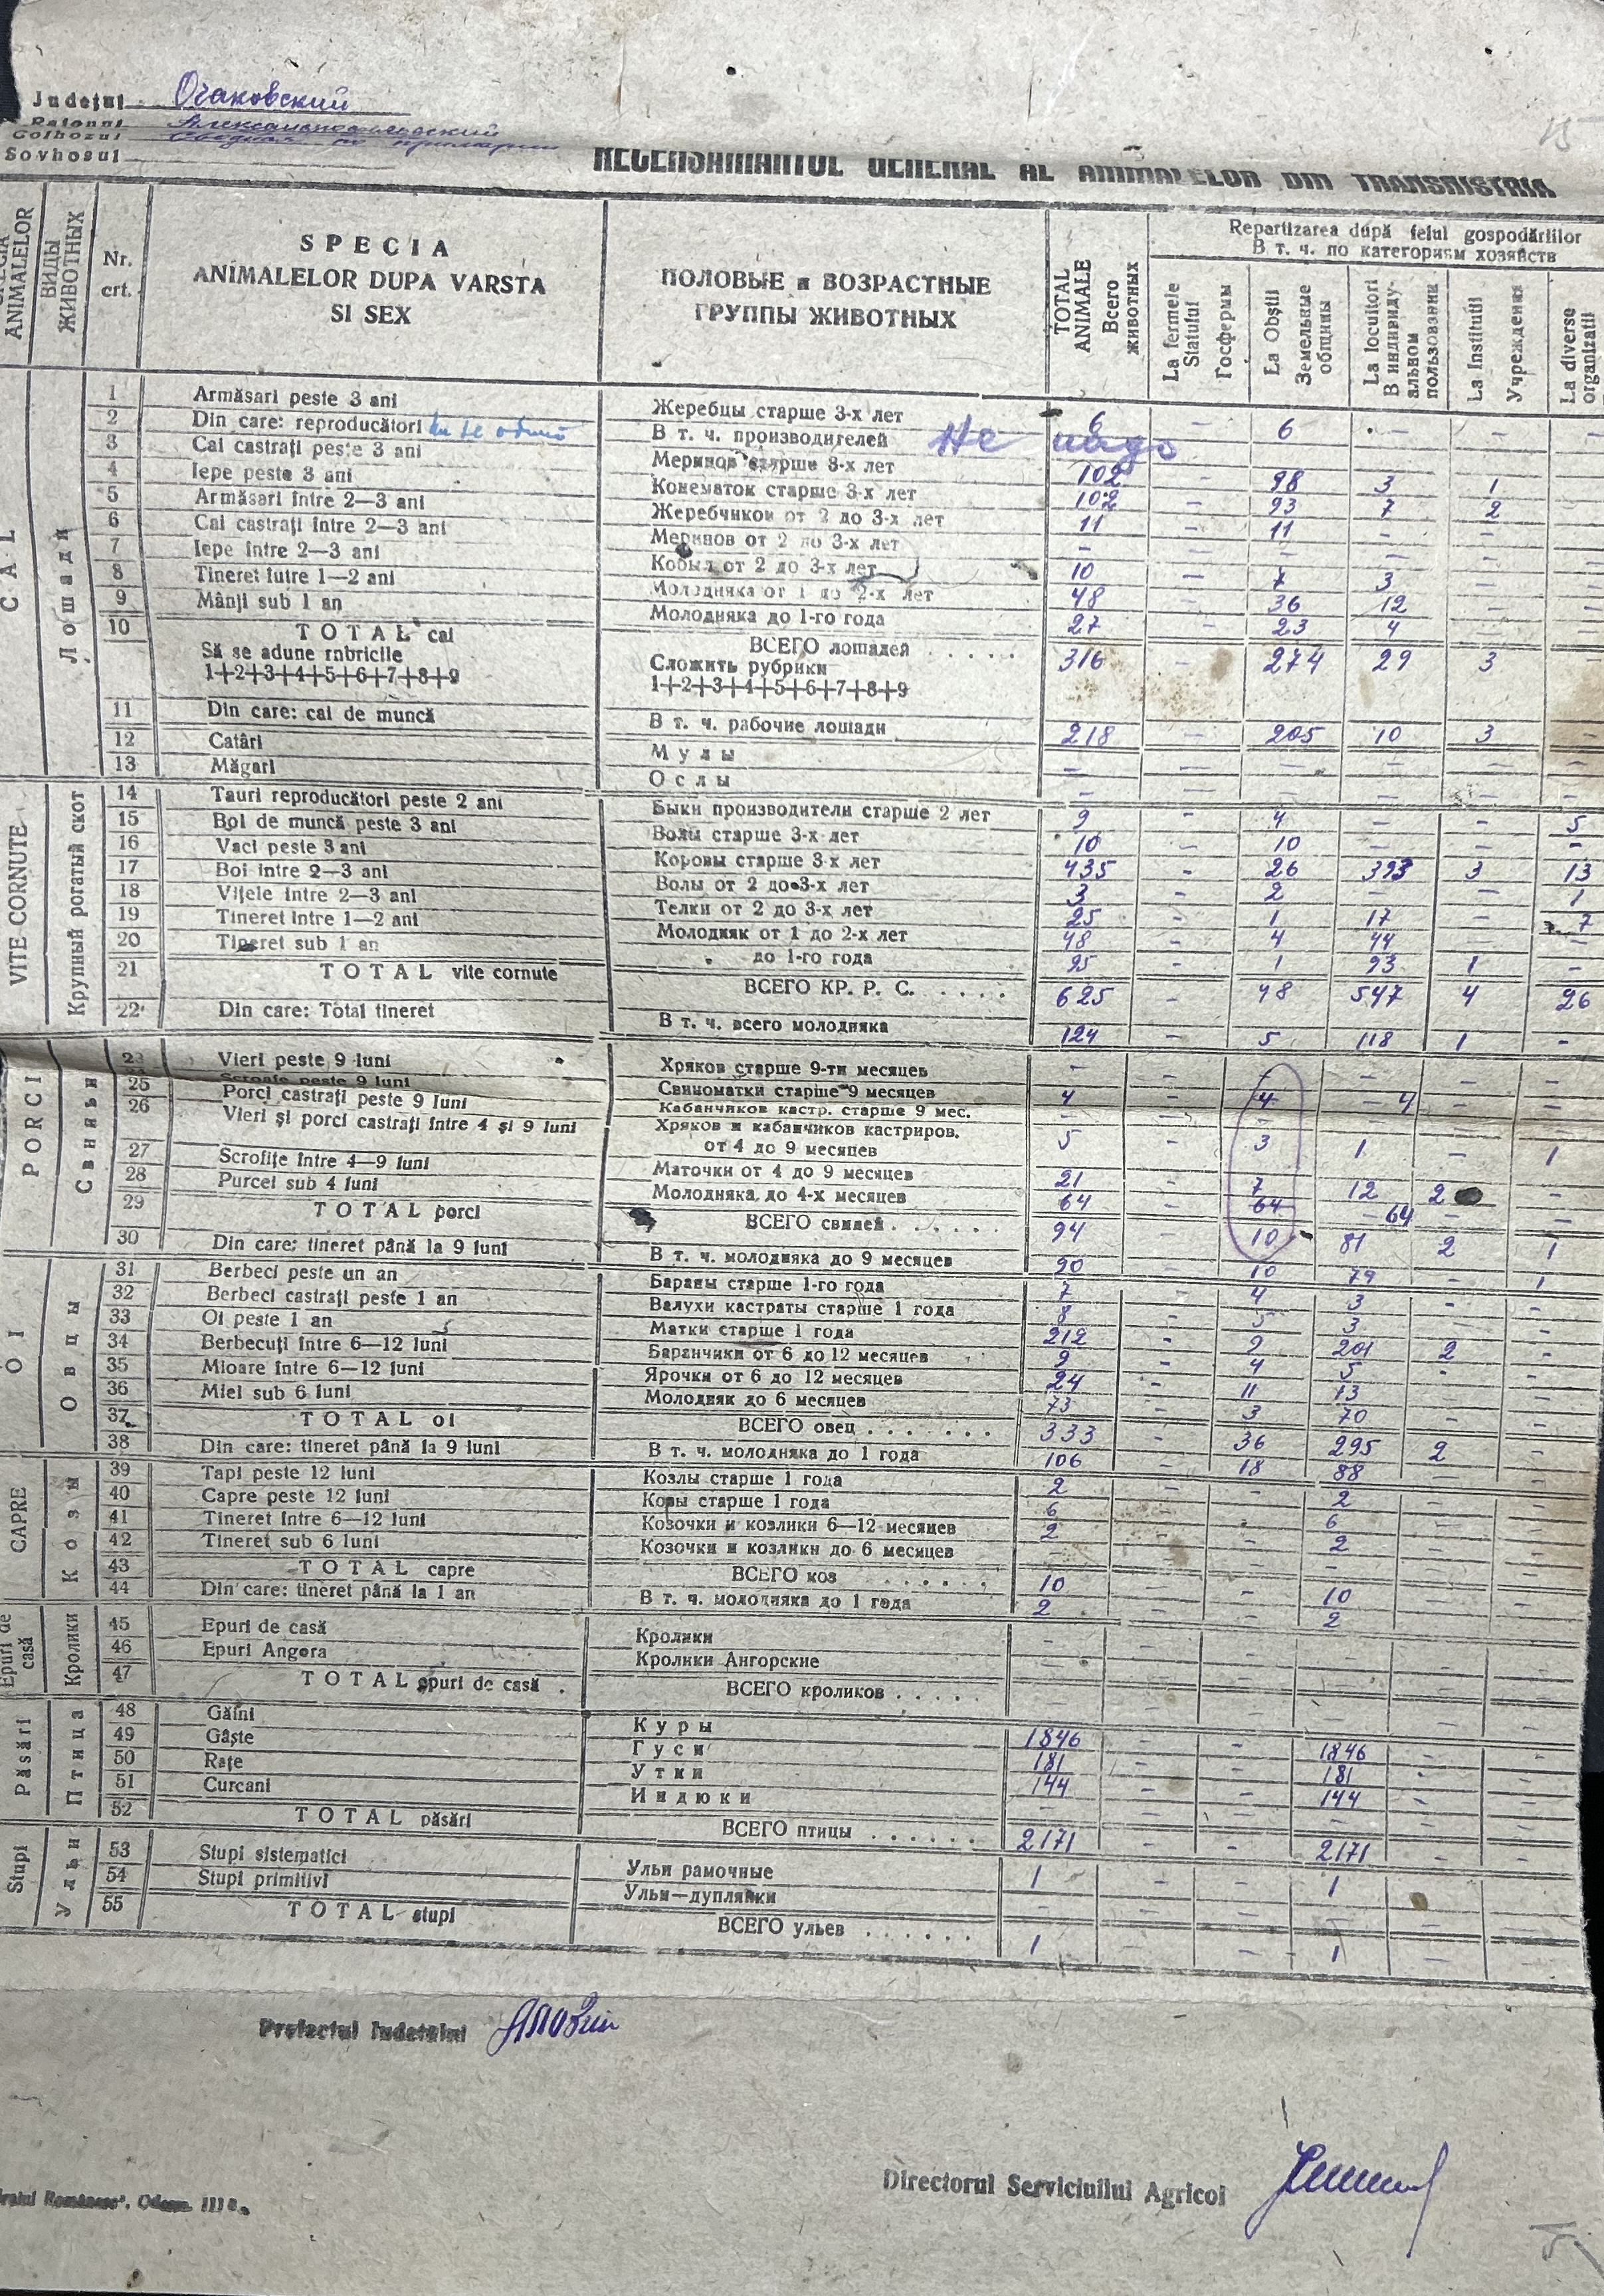 Județul Очаковский
Raionul
Colhozul Сводная по примарии
Sovhosul
RECENSAMANTUL GENERAL AL ANIMALELOR DIN TRANSNISTRIA
ANIMALELOR
ВИДЫ ЖИВОТНЫХ
Nr. crt.
SPECIA
ANIMALELOR DUPA VARSTA
SI SEX
ПОЛОВЫЕ и ВОЗРАСТНЫЕ
ГРУППЫ ЖИВОТНЫХ
TOTAL ANIMALE Всего животных
Repartizarea după felul gospodăriilor
В т. ч. по категориям хозяйств
La fermele Statului Госфермы
La Obștii Земельные общины
La locuitori В индивиду- альном пользовании
La Institutii Учреждения
La diverse organizatii
CAI
Лошади
1 Armăsari peste 3 ani Жеребцы старше 3-х лет 6 - 6 - - -
2 Din care: reproducători В т. ч. производителей Не надо
3 Cai castrați peste 3 ani Меринов старше 3-х лет 102 - 98 3 1
4 Iepe peste 3 ani Конематок старше 3-х лет 102 - 93 7 2
5 Armăsari între 2—3 ani Жеребчиков от 2 до 3-х лет 11 - 11 - -
6 Cai castrați între 2—3 ani Меринов от 2 до 3-х лет - - - - -
7 Iepe între 2—3 ani Кобыл от 2 до 3-х лет 10 - 7 3 -
8 Tineret între 1—2 ani Молодняка от 1 до 2-х лет 48 - 36 12 -
9 Mânji sub 1 an Молодняка до 1-го года 27 - 23 4 -
10 TOTAL cai ВСЕГО лошадей . . . . . 316 - 274 29 3
Să se adune rnbricile Сложить рубрики
1+2+3+4+5+6+7+8+9 1+2+3+4+5+6+7+8+9
11 Din care: cai de muncă В т. ч. рабочие лошади 218 - 205 10 3 -
12 Catâri Мулы - - - - - -
13 Măgari Ослы - - - - - -
VITE CORNUTE
Крупный рогатый скот
14 Tauri reproducători peste 2 ani Быки производители старше 2 лет 9 - 4 - - 5
15 Boi de muncă peste 3 ani Волы старше 3-х лет 10 10 - - -
16 Vaci peste 3 ani Коровы старше 3-х лет 435 - 26 393 3 13
17 Boi între 2—3 ani Волы от 2 до 3-х лет 3 - 2 - - 1
18 Vițele între 2—3 ani Телки от 2 до 3-х лет 25 - 1 17 - 7
19 Tineret între 1—2 ani Молодняк от 1 до 2-х лет 48 - 4 44 - -
20 Tineret sub 1 an „ до 1-го года 95 - 1 93 1 -
21 TOTAL vite cornute ВСЕГО КР. Р. С. . . . . 625 - 48 547 4 26
22 Din care: Total tineret В т. ч. всего молодняка 124 - 5 118 1 -
PORCI
Свиньи
23 Vieri peste 9 luni Хряков старше 9-ти месяцев - - - - - -
24 Scroafe peste 9 luni Свиноматки старше 9 месяцев 4 - 4 - 4 - -
25 Porci castrați peste 9 luni Кабанчиков кастр. старше 9 мес. - - - - -
26 Vieri și porci castrați între 4 și 9 luni Хряков и кабанчиков кастриров.
от 4 до 9 месяцев 5 - 3 1 - 1
27 Scrofițe între 4—9 luni Маточки от 4 до 9 месяцев 21 - 7 12 2 -
28 Purcei sub 4 luni Молодняка до 4-х месяцев 64 - 64 - 64 - -
29 TOTAL porci ВСЕГО свиней . . . . . . 94 - 10 81 2 1
30 Din care: tineret până la 9 luni В т. ч. молодняка до 9 месяцев 90 - 10 79 - 1
OI
Овцы
31 Berbeci peste un an Бараны старше 1-го года 7 - 4 3 - -
32 Berbeci castrați peste 1 an Валухи кастраты старше 1 года 8 - 5 3 - -
33 Oi peste 1 an Матки старше 1 года 212 - 9 201 2 -
34 Berbecuți între 6—12 luni Баранчики от 6 до 12 месяцев 9 - 4 5 - -
35 Mioare între 6—12 luni Ярочки от 6 до 12 месяцев 24 - 11 13 - -
36 Miei sub 6 luni Молодняк до 6 месяцев 73 - 3 70 - -
37 TOTAL oi ВСЕГО овец . . . . . . . 333 - 36 295 2 -
38 Din care: tineret până la 9 luni В т. ч. молодняка до 1 года 106 - 18 88 - -
CAPRE
Козы
39 Tapi peste 12 luni Козлы старше 1 года 2 - - 2 - -
40 Capre peste 12 luni Козы старше 1 года 6 - - 6 - -
41 Tineret între 6—12 luni Козочки и козлики 6—12 месяцев 2 - - 2 - -
42 Tineret sub 6 luni Козочки и козлики до 6 месяцев - - - - - -
43 TOTAL capre ВСЕГО коз . . . . . . 10 - - 10 - -
44 Din care: tineret până la 1 an В т. ч. молодняка до 1 года 2 - - 2 - -
Epuri de casă
Кролики
45 Epuri de casă Кролики - - - - - -
46 Epuri Angora Кролики Ангорские - - - - - -
47 TOTAL epuri de casă . ВСЕГО кроликов . . . . . - - - - - -
Păsări
Птица
48 Găini Куры 1846 - - 1846 - -
49 Gâște Гуси 181 - - 181 - -
50 Rațe Утки 144 - - 144 - -
51 Curcani Индюки - - - - - -
52 TOTAL păsări ВСЕГО птицы . . . . . . 2171 - - 2171 - -
Stupi
Ульи
53 Stupi sistematici Ульи рамочные 1 - - 1 - -
54 Stupi primitivi Ульи—дуплянки - - - - - -
55 TOTAL stupi ВСЕГО ульев . . . . . . 1 - - 1 - -
Prefectul Iudetului
Directorul Serviciului Agricol